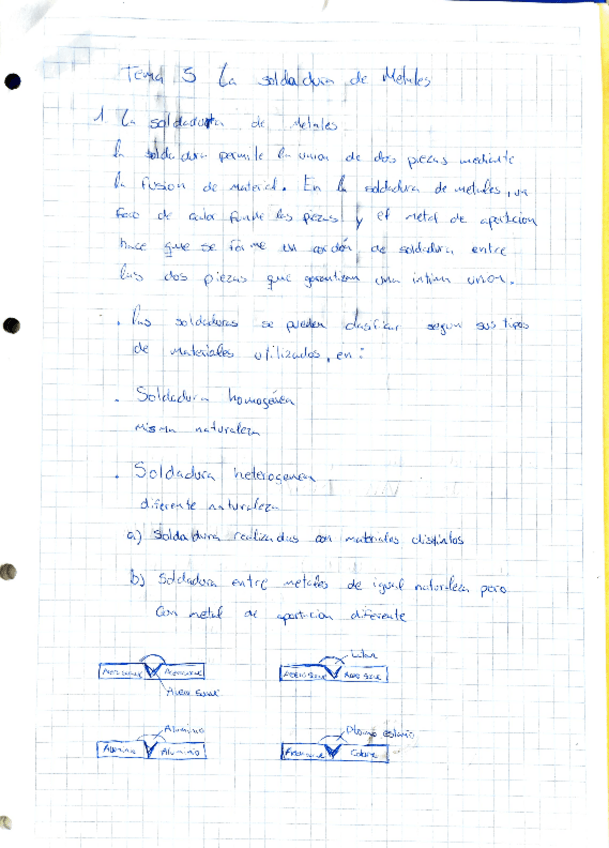 Tema 5 La soldadura de Metales
1 La soldadura de Metales
la soldadura permite la union de dos piezas mediante
la fusion de material. En la soldadura de metales, un
foco de calor funde las piezas y el metal de aporticion
hace que se forme un cordón de soldadura entre
las dos piezas que garantizan una intima union.
. Las soldaduras se pueden clasificar segun sus tipos
de materiales utilizados, en:
. Soldadura homogénea
misma naturaleza
. Soldadura heterogenea
diferente naturaleza
a) Soldadura realizadas con materiales distintos
b) Soldadura entre metales de igual naturaleza pero
con metal de aporticion diferente
Acero suave Acero suave
Acero suave
Laton
Acero suave Acero suave
Aluminio
Aluminio Aluminio
Plomo estaño
Acero suave Cobre